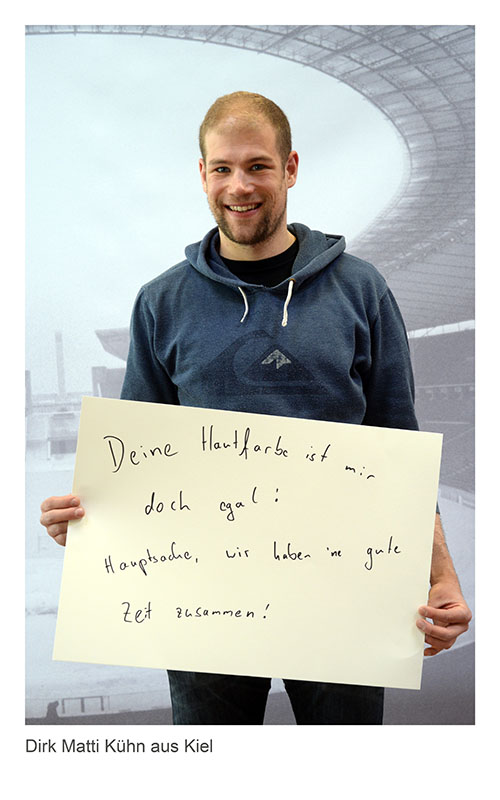 Deine Hautfarbe ist mir
doch egal!
Hauptsache, wir haben 'ne gute
Zeit zusammen!
Dirk Matti Kühn aus Kiel